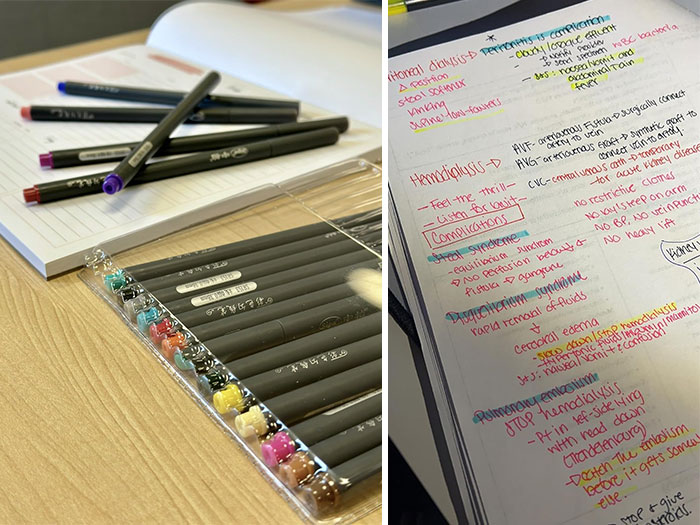 Peritonitis is complication
- cloudy/opaque effluent
→ Notify provider
→ Send specimen
WBC bacteria
- S+S: nausea/vomit and
abdominal pain
fever
dialysis →
Δ position
stool softner
kinking
supine/low-fowlers
AVF- arteriovenous Fistula → surgically connect
artery to vein
AVG- arteriovenous graft → synthetic graft to
connect vein to artery.
CVC- central venous cath → temporary
for acute kidney disease
Hemodialysis →
- Feel the thrill
- Listen for bruit
Complications
no restrictive clothes
No lay/sleep on arm
No B.P. No vein punct
No heavy lift
Kidney
Steal syndrome
→ No perfusion below
fistula → gangrene
Disequilibrium syndrome
rapid removal of fluids
cerebral edema
- Slow down/STOP hemodialysis
S+S: nausea/vomit + confusion
Pulmonary embolism
STOP hemodialysis
- Pt in left-side lying
with head down
(Trendelenburg)
→ Catch the embolism
before it gets
else.
STOP + give